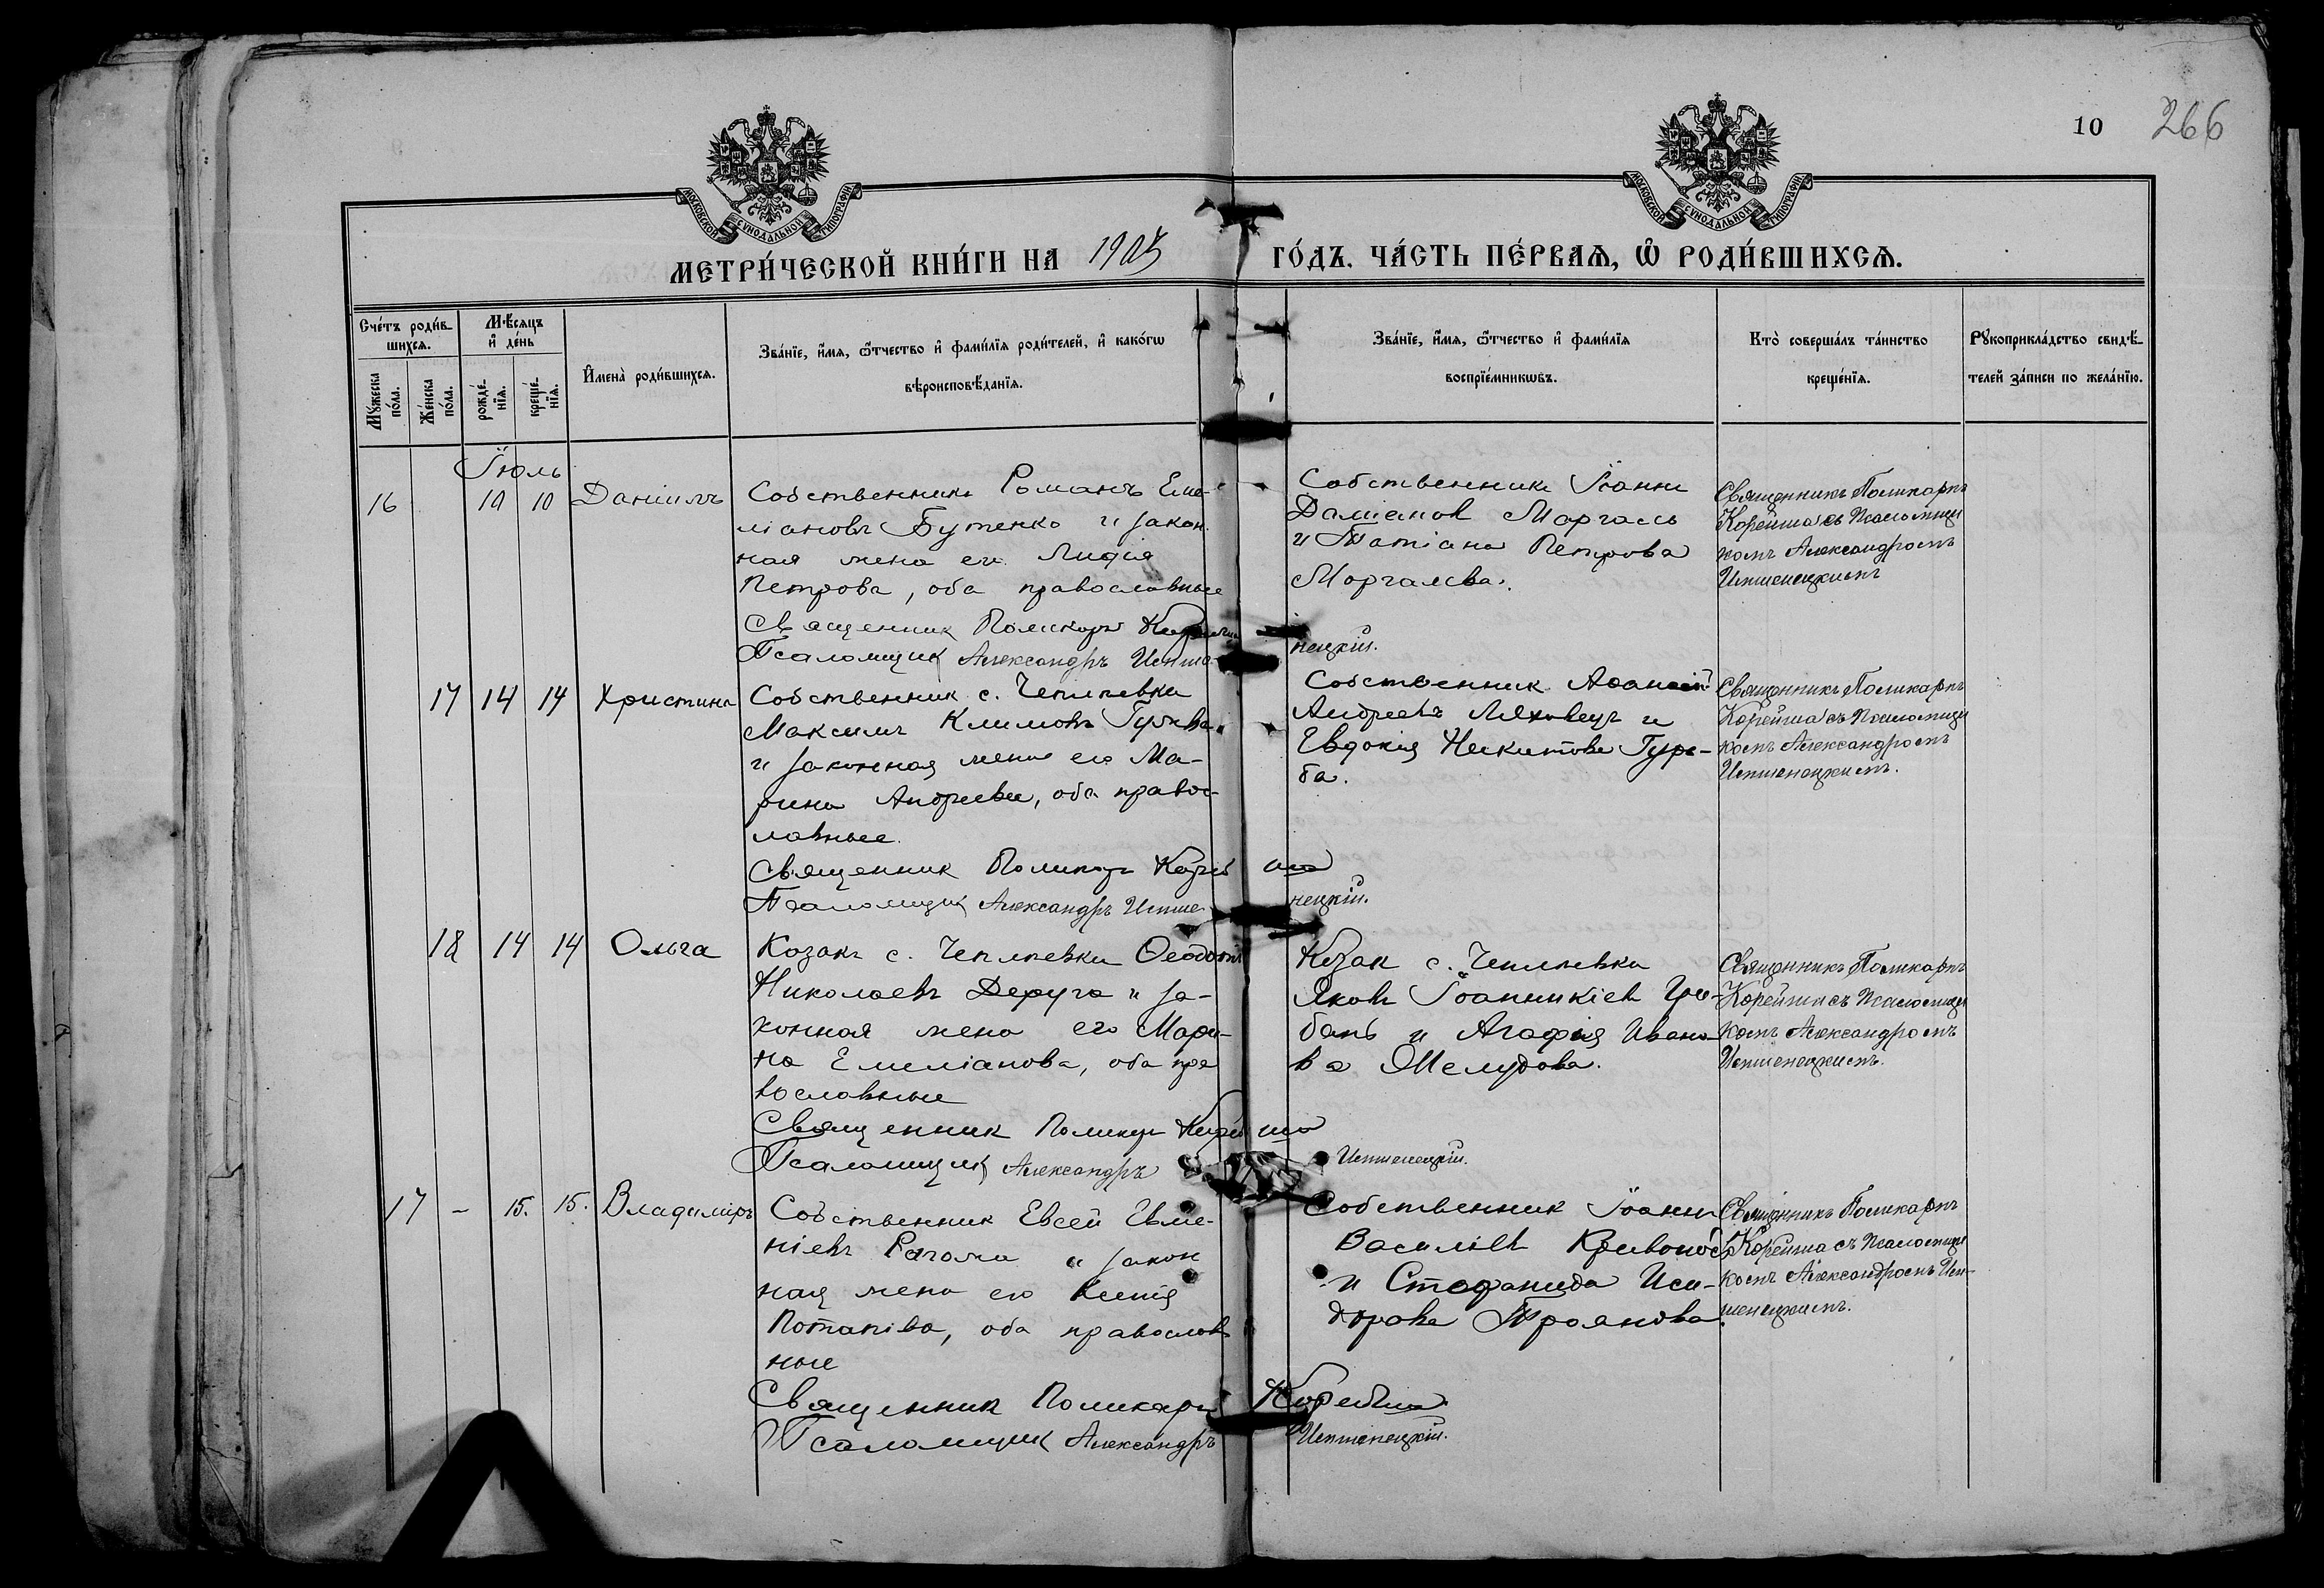 10 266
МОСКОВСКОЙ СѴНОДАЛЬНОЙ ТИПОГРАФІИ
МОСКОВСКОЙ СѴНОДАЛЬНОЙ ТИПОГРАФІИ
МЕТРИ́ЧЕСКОЙ КНИ́ГИ НА 1905 ГО́ДЪ. ЧА́СТЬ ПЕ́РВАѦ, Ѽ РОДИ́ВШИХСѦ.
Сче́тъ роди́в-
шихсѧ.
Мꙋ́жеска по́ла.
Же́нска по́ла.
Мѣ́сяцъ и҆ де́нь
рожде́-
нїѧ.
креще́-
нїѧ.
И҆мена̀ роди́вшихсѧ.
Зва́нїе, и҆́мѧ, ѻ҆́тчество и҆ фами́лїѧ роди́телей, и҆ како́гѡ
вѣроисповѣ́данїѧ.
Зва́нїе, и҆́мѧ, ѻ҆́тчество и҆ фами́лїѧ
воспрїе́мникѡвъ.
Кто̀ соверша́лъ та́инство
креще́нїѧ.
Рꙋкоприкла́дство свидѣ́-
телей за́писи по жела́нїю.
Іюль
16 10 10 Даніилъ
Собственникъ Романъ Еме-
ліановъ Бутенко и закон
ная жена его Лидія
Петрова, оба православные
Священник Поликарп
Псаломщик Александръ
нецкій.
Собственникъ Іоанн
Даміанов Маргаль
и Татіана Петрова
Моргалева.
Священникъ Поликарпъ
Корейша съ Псаломщи
комъ Александромъ
17 14 14 Христина
Собственник с. Чеплевка
Максимъ Климовъ
и законная жена его Ма-
рина Андреева, оба правос-
лавные.
Священник Поликарп Корей ша
Псаломщик Александръ
нецкій.
Собственник Аѳанасій
Андреевъ Ляховецъ и
Евдокія Никитова Гуре-
ба.
Священникъ Поликарпъ
Корейша съ Псаломщи
комъ Александромъ
18 14 14 Ольга
Козакъ с. Чеплевки Ѳеодотъ
Николаевъ Дериуга и за-
конная жена его Мари-
на Емеліанова, оба пра
вославные
Священник Поликарп Корей ша
Псаломщик Александръ
Козак с. Чеплевки
Яковъ Іоанникіев Цы-
бань и Агафія Ивано-
ва Шелудова.
Священникъ Поликарпъ
Корейша съ Псаломщи
комъ Александромъ
17 – 15. 15. Владиміръ
Собственник Евсей Евме-
ніевъ Рагоза и закон
ная жена его Ксенія
Потапіва, оба православ
ные
Священник Поликарп Корейша
Псаломщик Александръ
Собственник Іоанн
Василіев Кривонос
и Стефанида Иси-
дорова Троянова.
Священникъ Поликарпъ
Корейша съ Псаломщи
комъ Александромъ